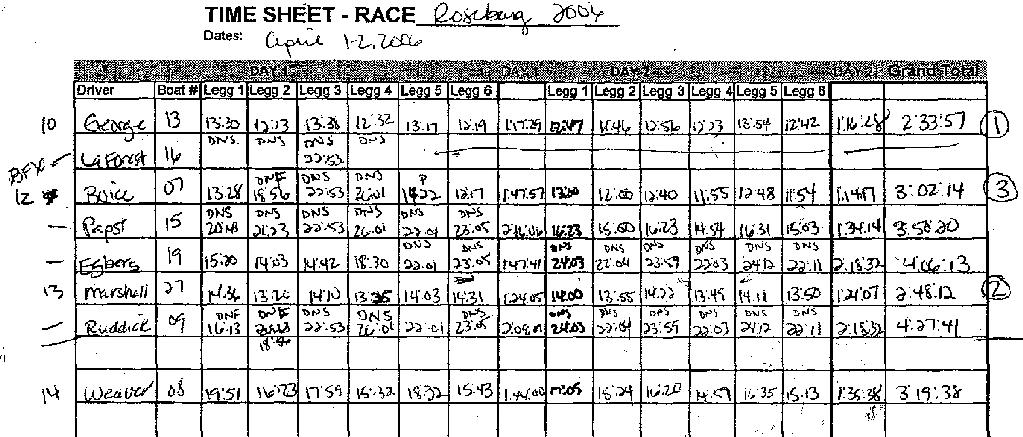 TIME SHEET - RACE Roseburg 2006
Dates: April 1-2, 2006
DAY 1 DAY 1 DAY 2 DAY 2 Grand Total
Driver Boat # Legg 1 Legg 2 Legg 3 Legg 4 Legg 5 Legg 6 Legg 1 Legg 2 Legg 3 Legg 4 Legg 5 Legg 6
10 George 13 13:30 12:13 13:38 12:32 13:17 12:19 1:17:29 12:47 11:46 12:56 12:23 13:54 12:42 1:16:28 2:33:57 1
DNS DNS DNS DNS
LaForest 16 22:53
DNF DNS DNS P
12 Boice 07 13:28 18:56 22:53 26:01 14:22 12:17 1:47:57 13:00 12:00 12:40 11:55 12:48 11:54 1:14:17 3:02:14 3
DNS DNS DNS DNS DNS DNS
Papst 15 21:23 22:53 26:01 22:01 23:05 16:23 15:00 16:23 14:54 16:31 15:03 1:34:14 3:50:20
DNS DNS DNS DNS DNS DNS DNS DNS
Esbers 19 15:20 14:03 14:42 18:30 22:01 23:05 1:47:41 24:03 22:04 23:59 22:03 24:12 22:11 2:18:32 4:06:13
13 Marshall 27 14:36 13:20 14:10 13:25 14:03 14:31 1:24:05 14:00 13:55 14:22 13:49 14:11 13:50 1:24:07 2:48:12 2
DNF DNF DNS DNS DNS DNS DNS DNS DNS DNS DNS
Ruddick 09 16:13 22:53 26:01 22:01 23:05 24:03 22:04 23:59 22:03 24:12 22:11 2:18:32 4:27:41
18:56
14 Weaver 08 19:51 16:23 17:59 15:32 18:32 15:43 1:44:00 17:05 15:24 16:20 14:57 16:35 15:13 1:35:38 3:19:38